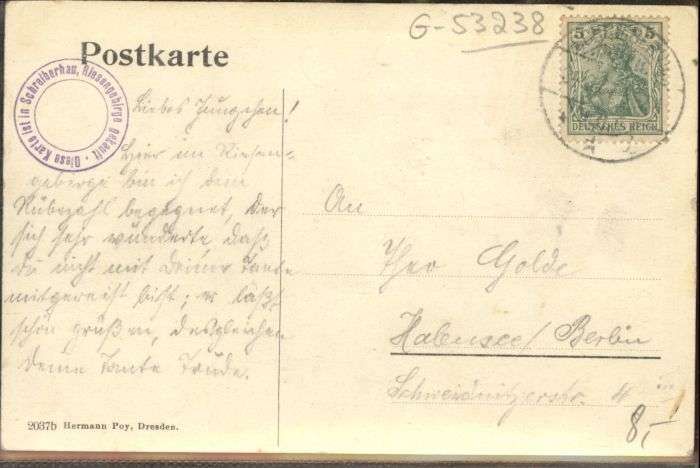 G-53238
Postkarte
Diese Karte ist in Schreiberhau, Riesengebirge gekauft
5 5
DEUTSCHES REICH
Liebes Jungchen!
Hier im Riesen-
gebirge bin ich dem
Rübezahl begegnet, der
sich sehr wunderte, daß
du nicht mit Deiner Tante
mitgereist bist; er läßt
schön grüßen, desgleichen
Deine Tante Trude.
An
Theo Golde
Halensee/Berlin
Schweidnitzerstr.
8,-
2037b Hermann Poy, Dresden.